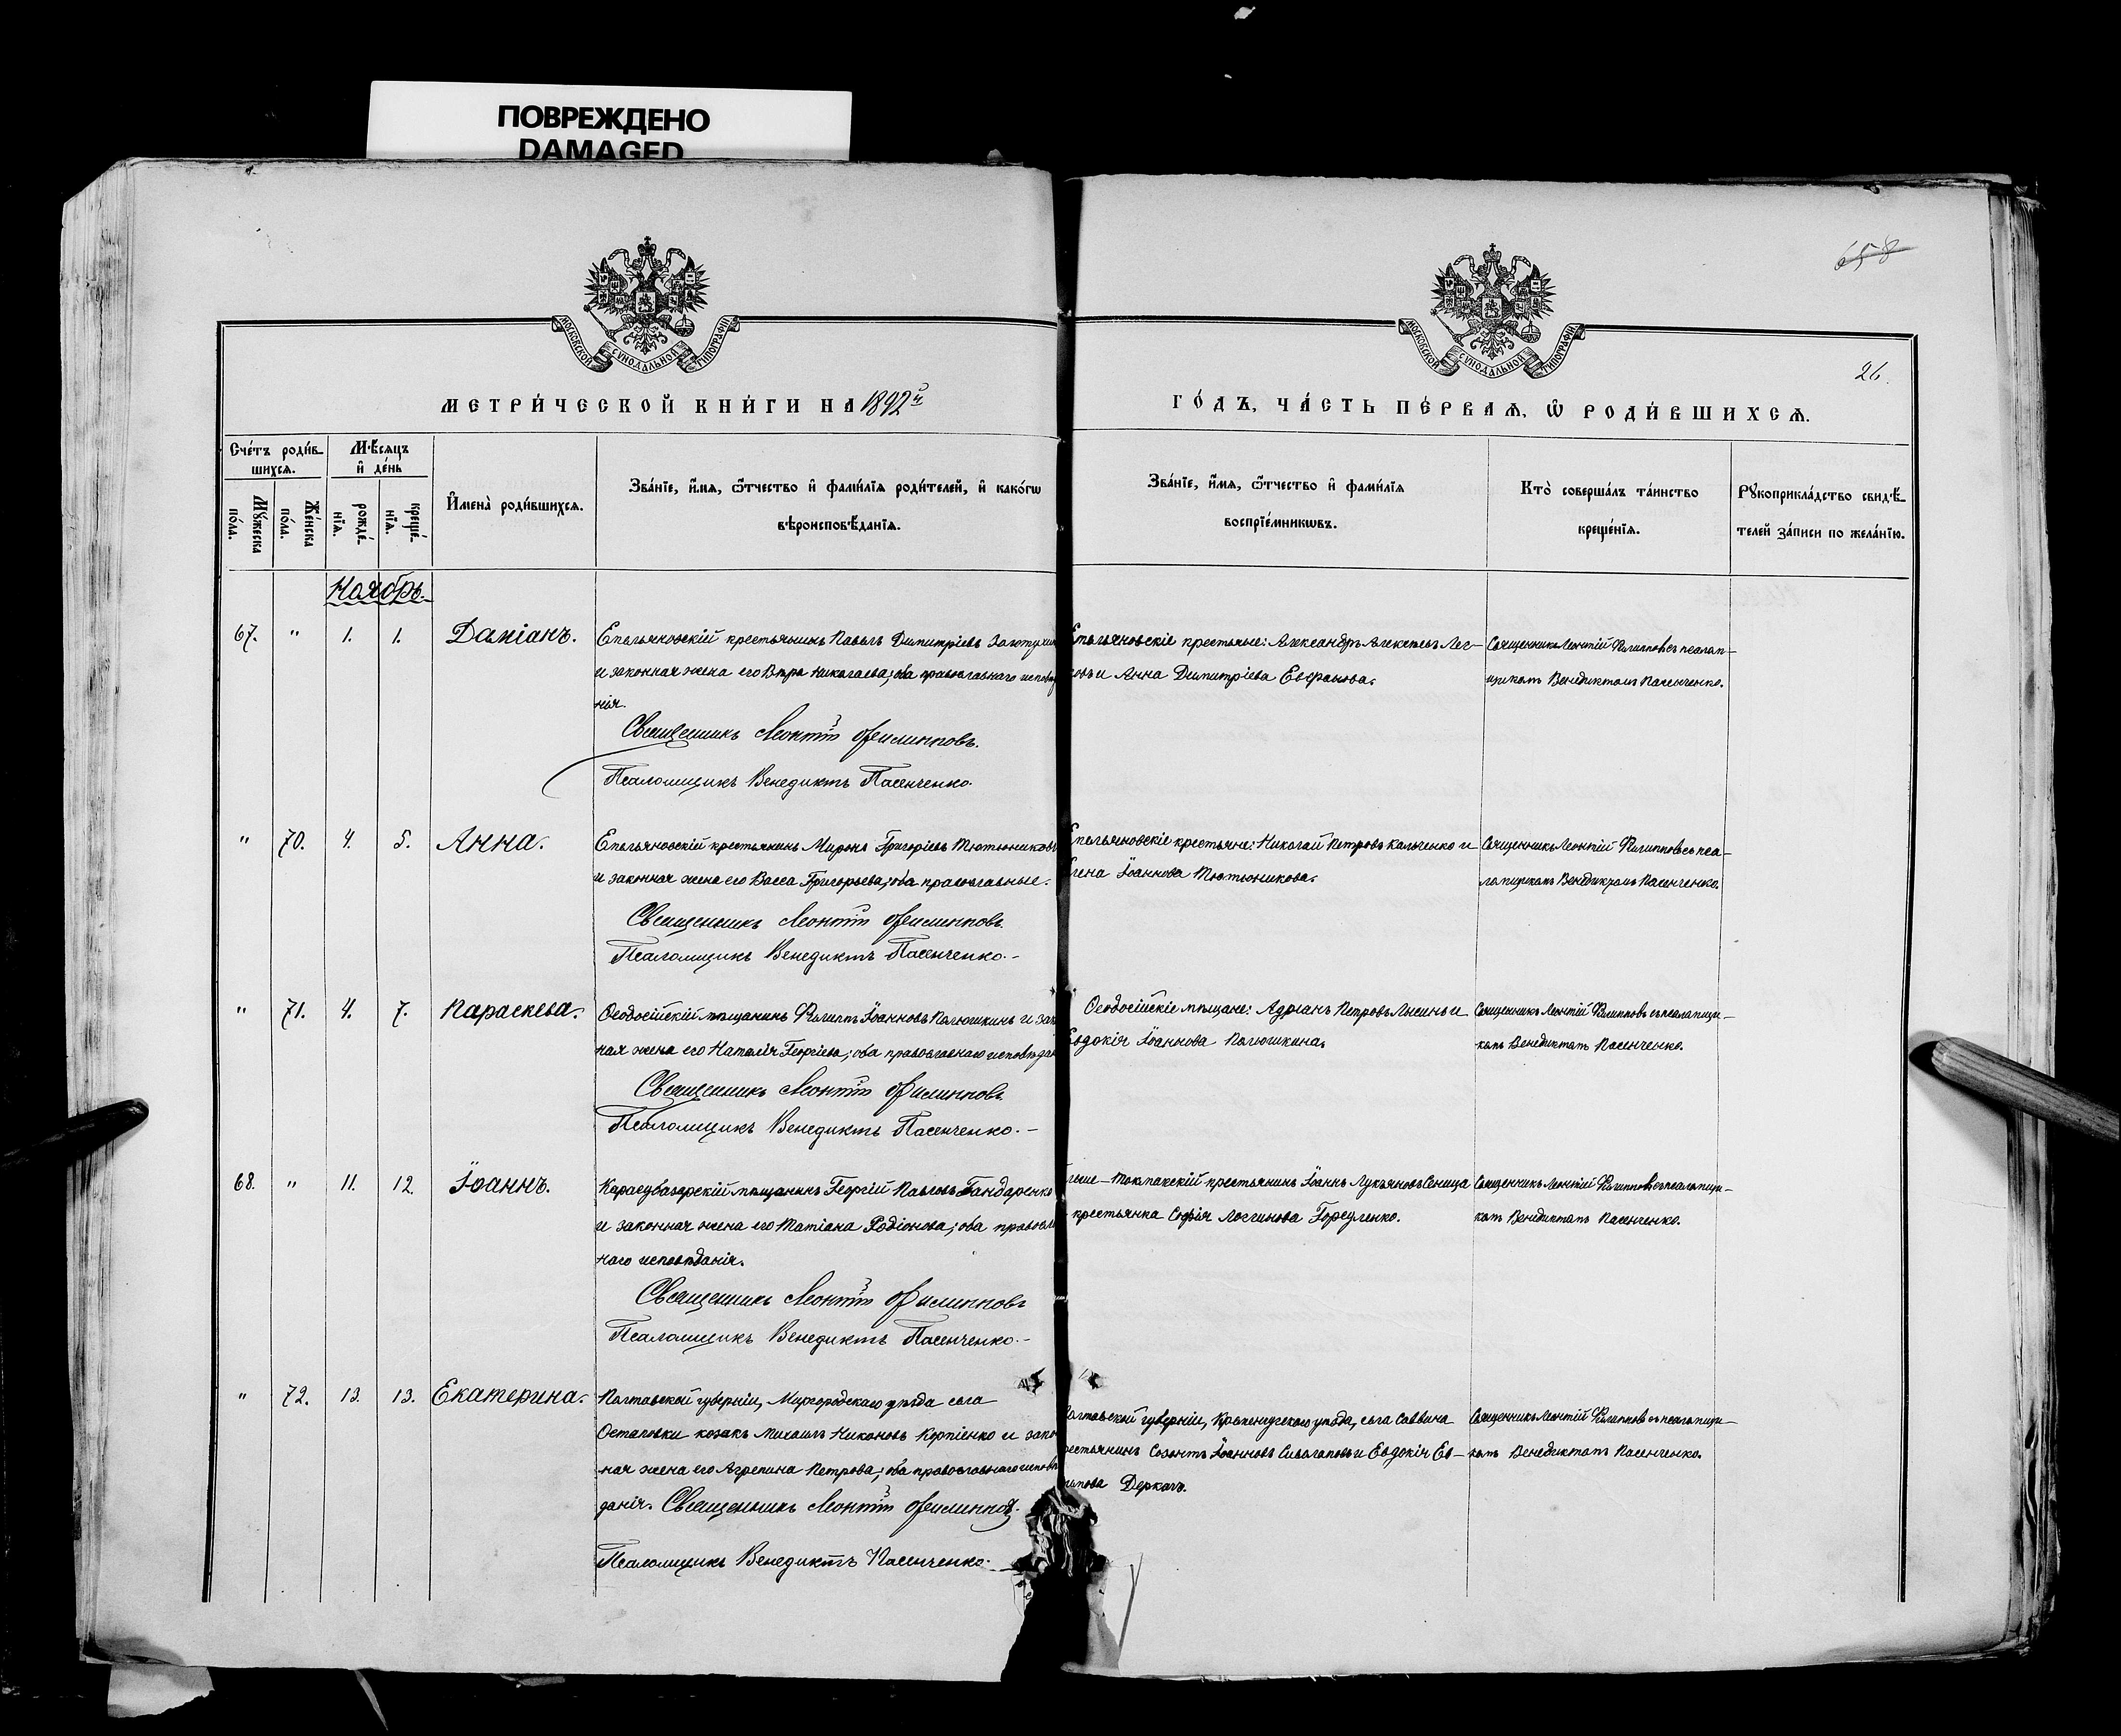 ПОВРЕЖДЕНО
DAMAGED
658
МОСКОВСКОЙ СѴНОДАЛЬНОЙ ТИПОГРАФІИ
МОСКОВСКОЙ СѴНОДАЛЬНОЙ ТИПОГРАФІИ
26.
МЕТРИ́ЧЕСКОЙ КНИ́ГИ НА 1892й
ГО́ДЪ, ЧА́СТЬ ПЕ́РВАѦ, Ѡ РОДИ́ВШИХСѦ.
Сче́тъ роди́в-
шихсѧ.
Мꙋ́жеска
по́ла.
Же́нска
по́ла.
Мѣ́сѧцъ
и҆ де́нь
рожде́-
нїѧ.
креще́-
нїѧ.
И҆мена̀ роди́вшихсѧ.
Зва́нїе, и҆́мѧ, ѻ҆́тчество и҆ фами́лїѧ роди́телей, и҆ како́гѡ
вѣроисповѣ́данїѧ.
Зва́нїе, и҆́мѧ, ѻ҆́тчество и҆ фами́лїѧ
воспрїе́мникѡвъ.
Кто̀ соверша́лъ та́инство
креще́нїѧ.
Рꙋкоприкла́дство свидѣ́-
телей за́писи по жела́нїю.
Ноябрь.
67. " 1. 1. Даміанъ.
Емельяновскій крестьянинъ Павелъ Димитріевъ
и законная жена его Вѣра Николаева; оба православнаго исповѣда
нія.
Священникъ Леонтій Филипповъ.
Псаломщикъ Венедиктъ Пасенченко.
Емельяновскіе крестьяне: Александръ Алексѣевъ Лес-
ковъ и Анна Димитріева Евсранова.
Священникъ Леонтій Филипповъ съ псалом-
щикомъ Венедиктомъ Пасенченко.
" 70. 4. 5. Анна.
Емельяновскій крестьянинъ Миронъ Григоріевъ Тютюниковъ
и законная жена его Васса Григорьева; оба православные.
Священникъ Леонтій Филипповъ.
Псаломщикъ Венедиктъ Пасенченко.-
Емельяновскіе крестьяне: Николай Петровъ Кальченко и
Елена Іоаннова Тютюникова.
Священникъ Леонтій Филипповъ съ пса-
ломщикомъ Венедиктомъ Пасенченко.
" 71. 4. 7. Параскева.
Ѳеодосійскій мѣщанинъ Филиппъ Іоанновъ Полюшкинъ и закон
ная жена его Наталія Георгіева; оба православнаго исповѣдан
Священникъ Леонтій Филипповъ
Псаломщикъ Венедиктъ Пасенченко.-
Ѳеодосійскіе мѣщане: Адріанъ Петровъ Лысинъ и
Евдокія Іоаннова Полюшкина.
Священникъ Леонтій Филипповъ съ псаломщи-
комъ Венедиктомъ Пасенченко.
68. " 11. 12. Іоаннъ.
Карасубазарскій мѣщанинъ Георгій Павловъ Гандаренко
и законная жена его Татіана Родіонова; оба правосла
наго исповѣданія.
Священникъ Леонтій Филипповъ
Псаломщикъ Венедиктъ Пасенченко.-
льше-Токмакскій крестьянинъ Іоаннъ Лукьяновъ Сеница
крестьянка Софія Логгинова Горедленко.
Священникъ Леонтій Филипповъ съ псаломщи-
комъ Венедиктомъ Пасенченко.
" 72. 13. 13. Екатерина.
Полтавской губерніи, Миргородскаго уѣзда села
Остаповки козакъ Михаилъ Никоновъ Корпіенко и закон
ная жена его Агрепина Петрова; оба православнаго исповѣ
данія. Священникъ Леонтій Филипповъ.
Псаломщикъ Венедиктъ Пасенченко.
Полтавской губерніи, Кременчугскаго уѣзда, села Саввина
крестьянинъ Созонтъ Іоанновъ Сиволаповъ и Евдокія Ев-
Деркачъ.
Священникъ Леонтій Филипповъ съ псаломщи-
комъ Венедиктомъ Пасенченко.